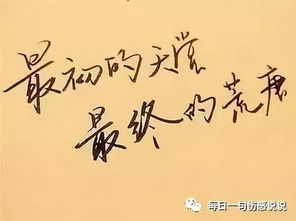 最初的天堂
最终的荒唐
每日一句伤感说说